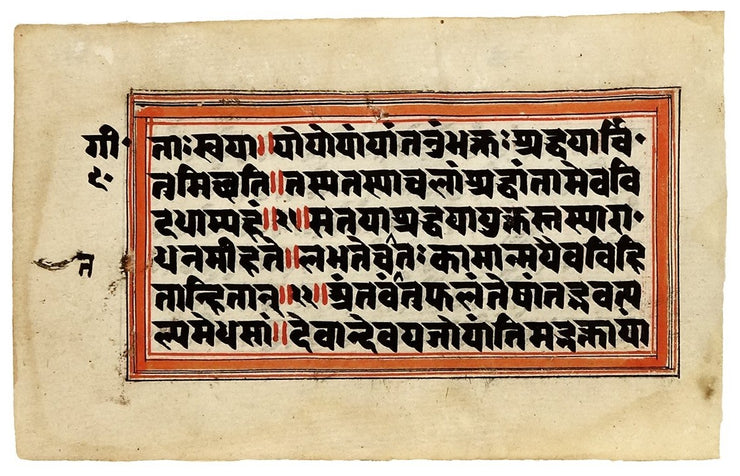 गी·
९·
त
ताःस्वया॥योयोयांयांतनुंभक्तःश्रद्धयार्चि·
तुमिच्छति॥तस्यतस्याचलांश्रद्धांतामेववि
दधाम्यहं॥२१॥सतयाश्रद्धयायुक्तस्तस्यारा·
धनमीहते॥लभतेचतःकामान्मयैवविहि
तान्हितान्॥२२॥अंतवत्तुफलंतेषांतद्भवत्य
ल्पमेधसां॥देवान्देवयजोयांतिमद्भक्तायां